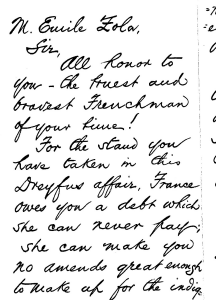 M. Emile Zola,
Sir,
All honor to
you - the truest and
bravest Frenchman
of your time!
For the stand you
have taken in this
Dreyfus affair, France
owes you a debt which
she can never pay;
she can make you
no amends great enough
to make up for the indig